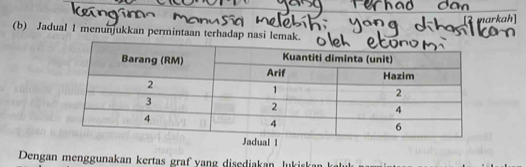 yang terhad dan
keinginan manusia melebihi yang dihasilkan
markah]
(b) Jadual 1 menunjukkan permintaan terhadap nasi lemak.
oleh ekonomi
Barang (RM) Kuantiti diminta (unit)
Arif Hazim
2 1 2
3 2 4
4 4 6
Jadual 1
Dengan menggunakan kertas graf yang disediakan, lukiskan